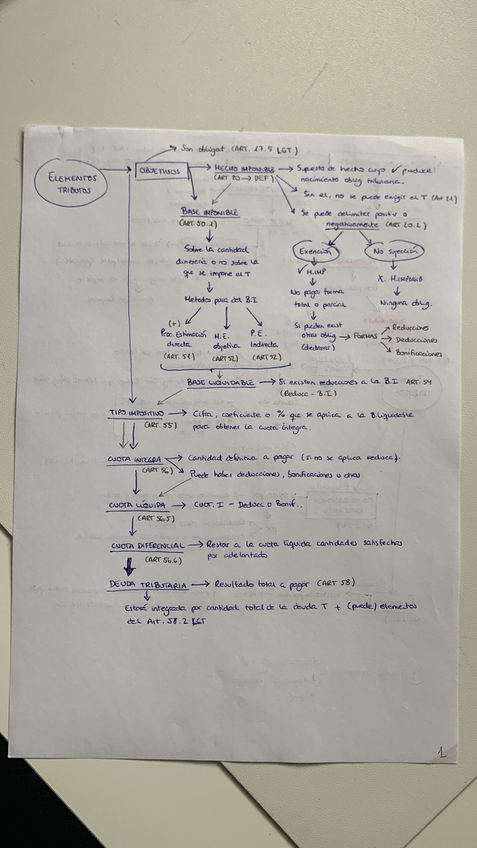 Son obligat (ART. 17.5 LGT)
ELEMENTOS
TRIBUTOS
OBJETIVOS
HECHO IMPONIBLE → Supuesto de hecho cuyo ✓ produce
(ART 20 → DEF)
nacimiento oblig tributaria.
Sin el, no se puede exigir el T (Art 21)
Se puede delimitar positiv o
negativamente (ART. 20.2)
BASE IMPONIBLE
(ART. 50.1)
Sobre la cantidad
dineraria o no sobre la
que se impone el T
Metodos para det B.I
(+)
Proc. Estimación
directa
(ART. 51)
M.E.
objetiva
(ART 52)
P.E.
Indirecta
(ART. 52)
Exención
✓ H.IMP
No pagar forma
total o parcial
Si pueden exist
otras oblig → FORMAS
(declarar)
Reducciones
Deducciones
Bonificaciones
No sujeción
X. H.IMPONIB
Ninguna oblig.
BASE LIQUIDABLE → Si existen reducciones a la B.I ART. 54
(Reducc - B.I)
TIPO IMPOSITIVO → Cifra, coeficiente o % que se aplica a la B.liquidable
(ART. 55)
para obtener la cuota íntegra.
CUOTA INTEGRA → Cantidad definitiva a pagar (si no se aplica reducc).
(ART 56)
Puede haber deducciones, bonificaciones u otras
CUOTA LÍQUIDA → CUOT. I - Deducc o Bonif..
(ART 56.5)
CUOTA DIFERENCIAL → Restar a la cuota líquida cantidades satisfechas
(ART 56.6)
por adelantado
DEUDA TRIBUTARIA → Resultado total a pagar (ART 58)
Estará integrada por cantidad total de la deuda T + (puede) elementos
del Art. 58.2 LGT
1